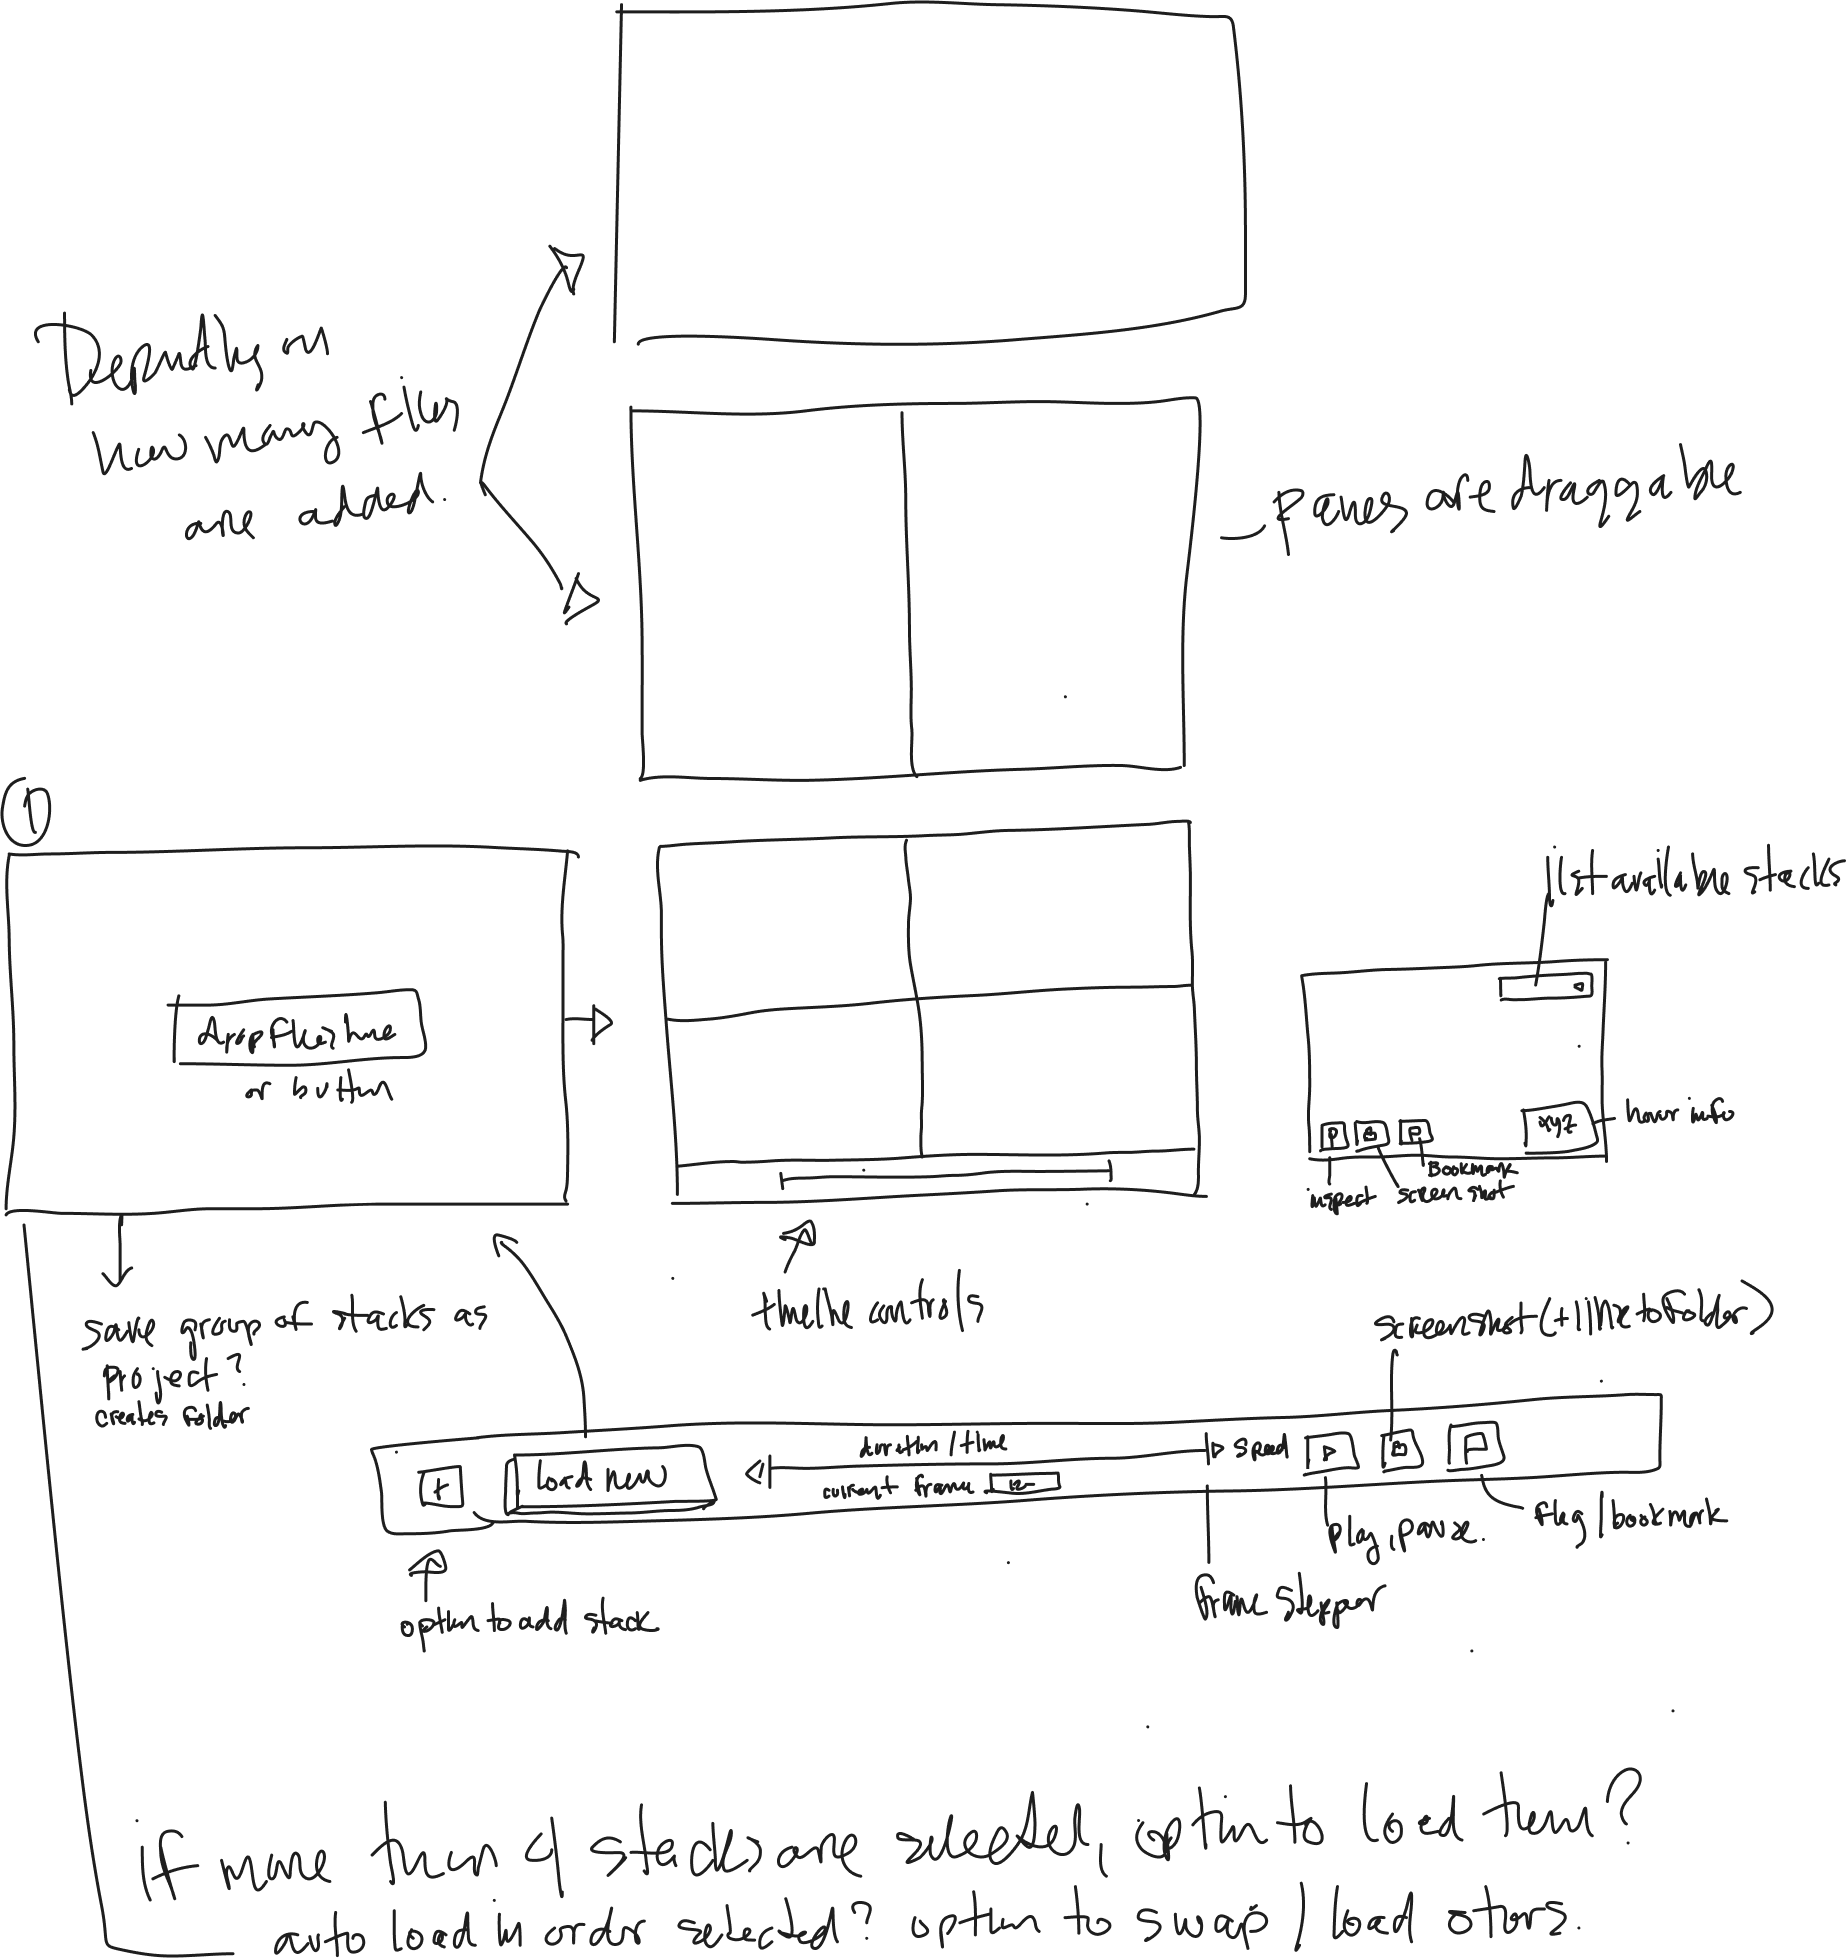 Depending on
how many files
are added.
Panes are draggable
1
drop files here
or button
list available stacks
xyz
hover info
Bookmark
inspect
screenshot
save group of stacks as
project?
creates folder
timeline controls
screenshot (+ link to folder)
+
load new
duration / time
current frame 12
speed
play, pause.
flag / bookmark
frame stepper
option to add stack
if more than 4 stacks are selected, option to load them?
auto load in order selected? option to swap / load others.